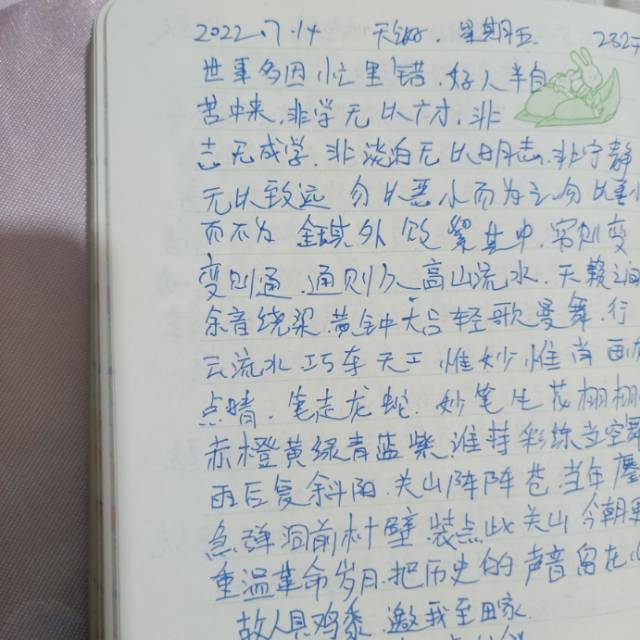 2022.7.14 天气 星期五 232
世事多因忙里错,好人半自
苦中来,非学无以广才,非
志无成学,非淡泊无以明志,非宁静
无以致远 勿以恶小而为之勿以善
而不为 金玉其外败絮其中,穷则变
变则通,通则久 高山流水,天籁之
余音绕梁,黄钟大吕轻歌曼舞,行
云流水巧夺天工 惟妙惟肖 画
点睛,笔走龙蛇,妙笔生花栩栩
赤橙黄绿青蓝紫,谁持彩练当空
雨后复斜阳,关山阵阵苍,当年鏖
急弹洞前村壁,装点此关山 今朝
重温革命岁月,把历史的声音留在
故人具鸡黍,邀我至田家